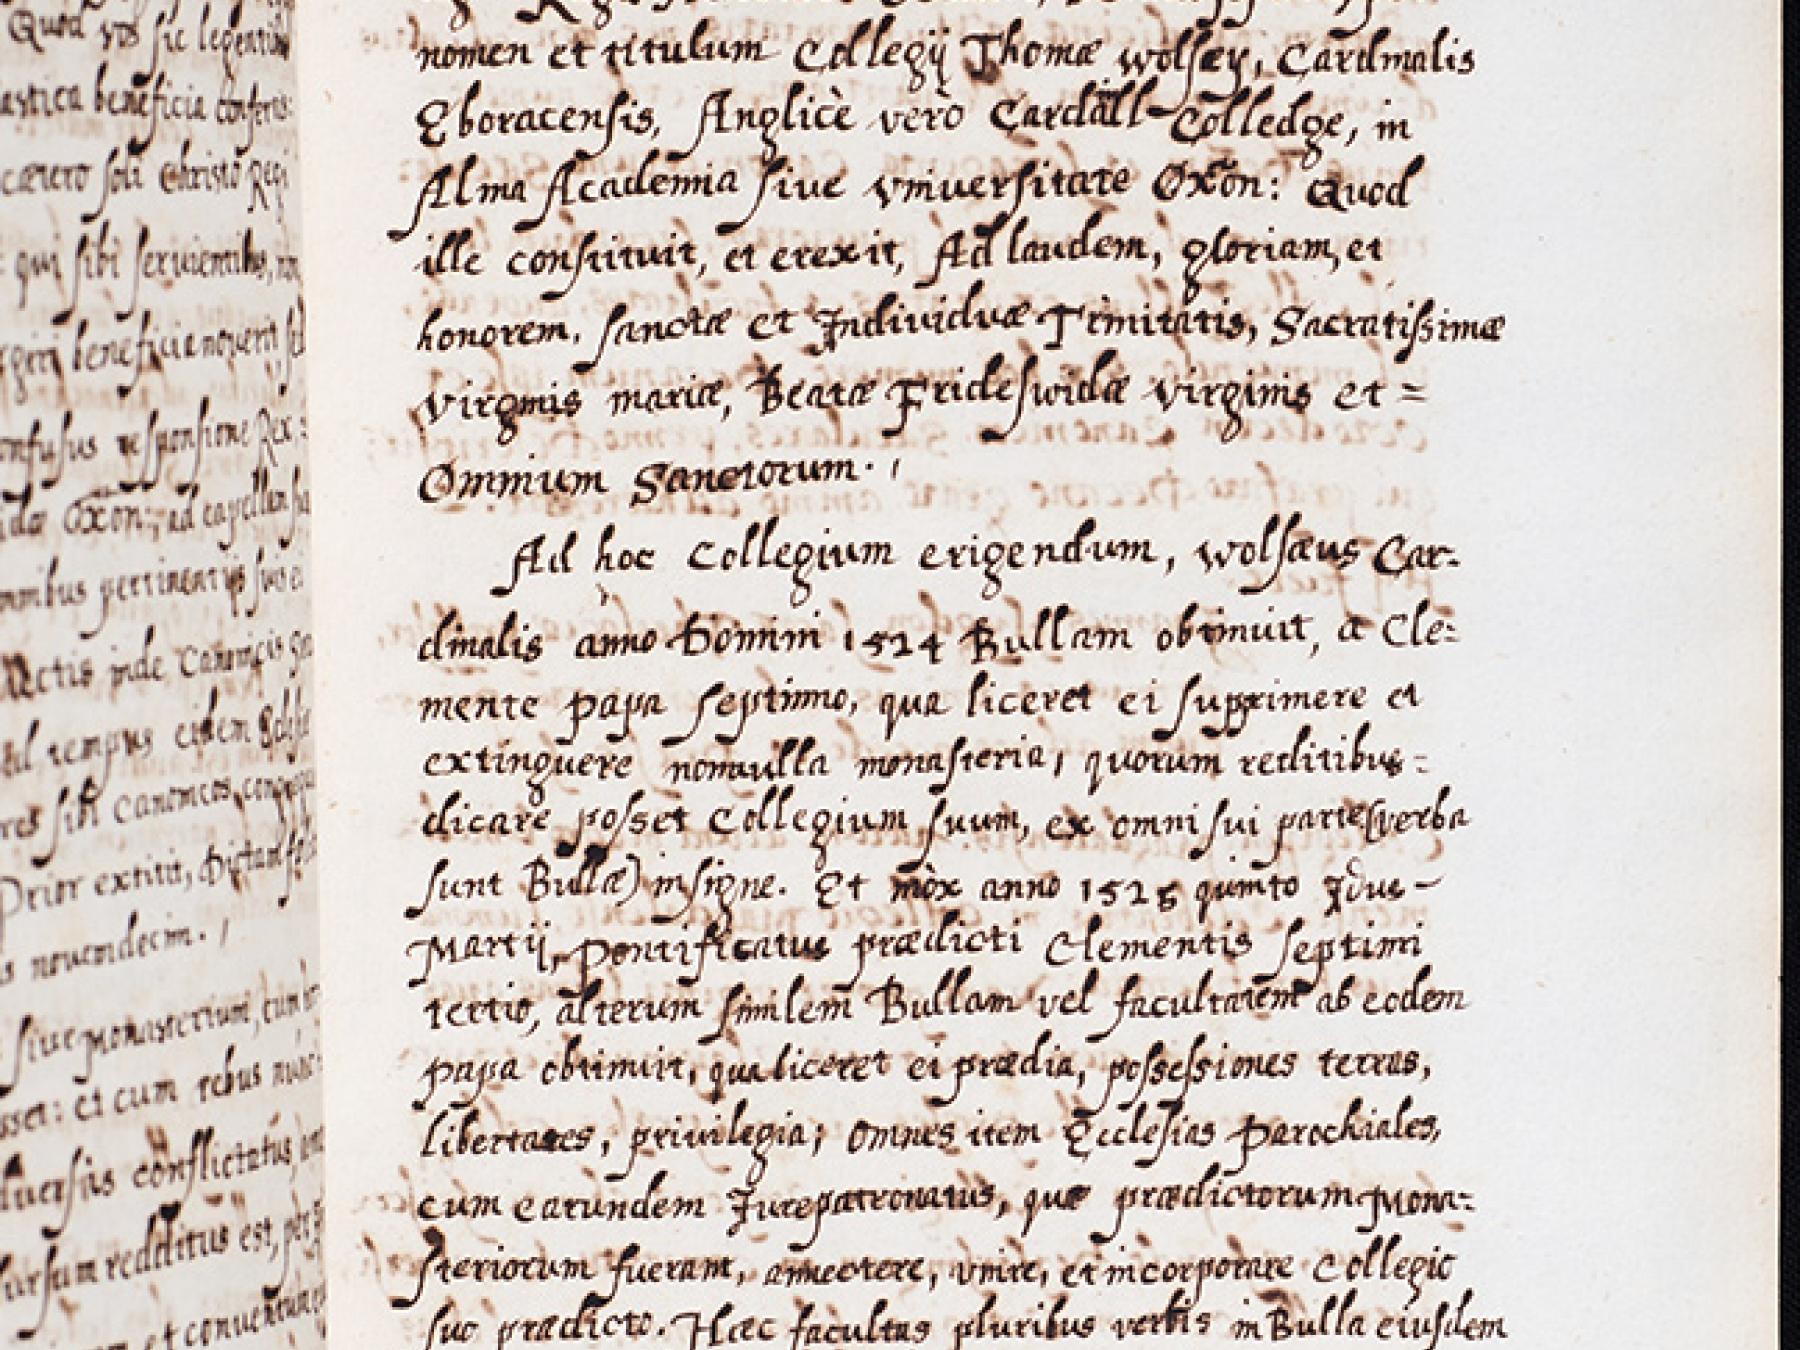 Quod vos sic legentibus
astica beneficia confertis:
cætero soli Christo Regi
qui sibi servientibus, non
beneficia noverit, sed
onfusus responsione Rex:
Oxon:, ad capellam
omnibus pertinentijs suis et
inde Canonicis
ad tempus eidem
res sibi Canonicos,
Prior extitit, Dictam
s novendecim.
sive Monasterium, cum
sset: et cum rebus
duersis conflictatus,
sursum redditus est, per
et conventum
nomen et titulum Collegij Thomæ wolsey, Cardinalis
Eboracensis, Anglicè verò Cardãll Colledge, in
Alma Academia sive vniversitate Oxõn: Quod
ille constituit, et erexit, Ad laudem, gloriam, et
honorem, sanctæ et Individuæ Trinitatis, Sacratissimæ
virginis mariæ, Beatæ Frideswidæ virginis et =
Omnium Sanctorum.
Ad hoc Collegium erigendum, wolsæus Car-
dinalis anno Domini 1524 Bullam obtinuit, a Cle-
mente papa septimo, qua liceret ei supprimere et
extinguere nonnulla monasteria, quorum reditibus =
dicare posset Collegium suum, ex omni sui parte (verba
sunt Bullæ) insigne. Et mòx anno 1525 quinto Idus –
Martij, Pontificatus prædicti Clementis septimi
tertio, alterum similem Bullam vel facultatem ab eodem
papa obtinuit, qua liceret ei prædia, possessiones terras,
libertates, privilegia; omnes item Ecclesias Parochiales,
cum earundem Jurepatronatus, quæ prædictorum Mona-
steriorum fuerant, annectere, vnire, et incorporare Collegio
suo prædicto. Hæc facultas pluribus verbis in Bulla eiusdem